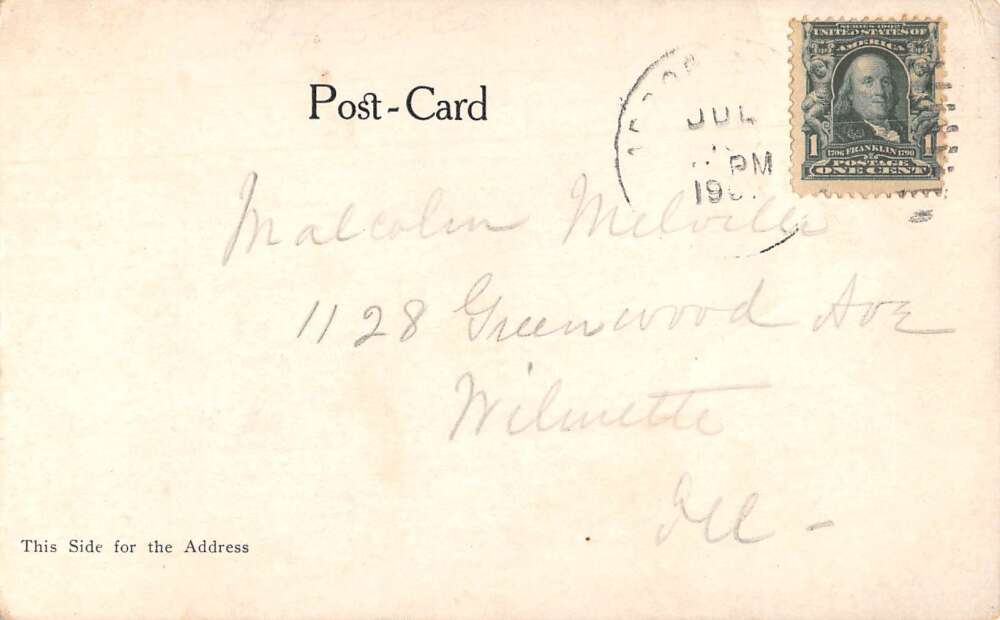 SERIES 1902
UNITED STATES OF
AMERICA
Post-Card
JUL
PM
190
1 1706 FRANKLIN 1790 1
POSTAGE
ONE CENT
Malcolm Melville
1128 Greenwood Ave
Wilmette
Ill -
This Side for the Address